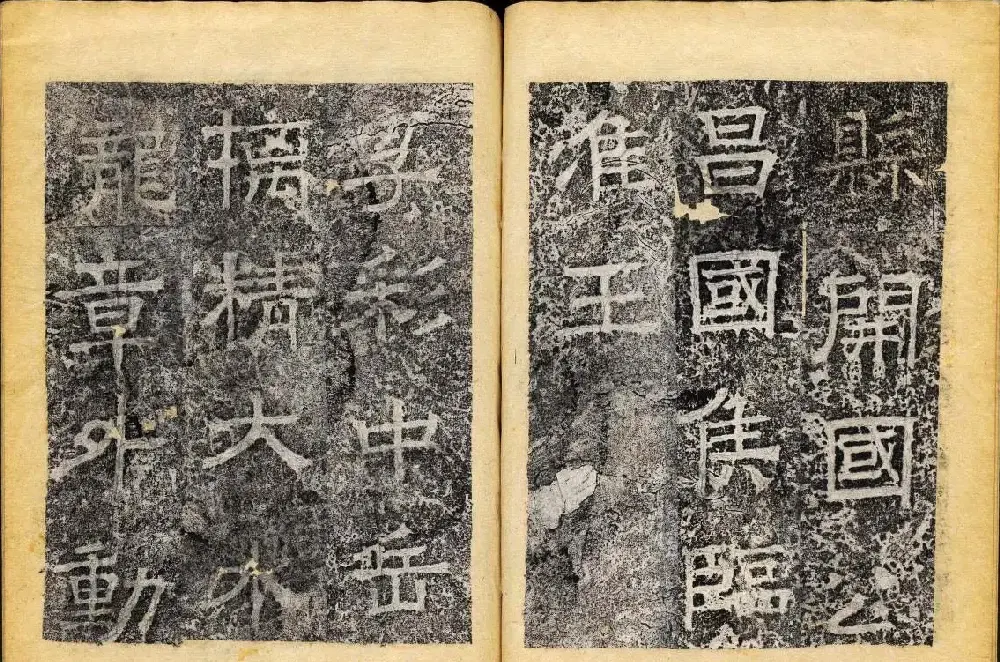 縣開國公
昌國侯臨
淮王
子彩中岳
摛精大木
龍章外動